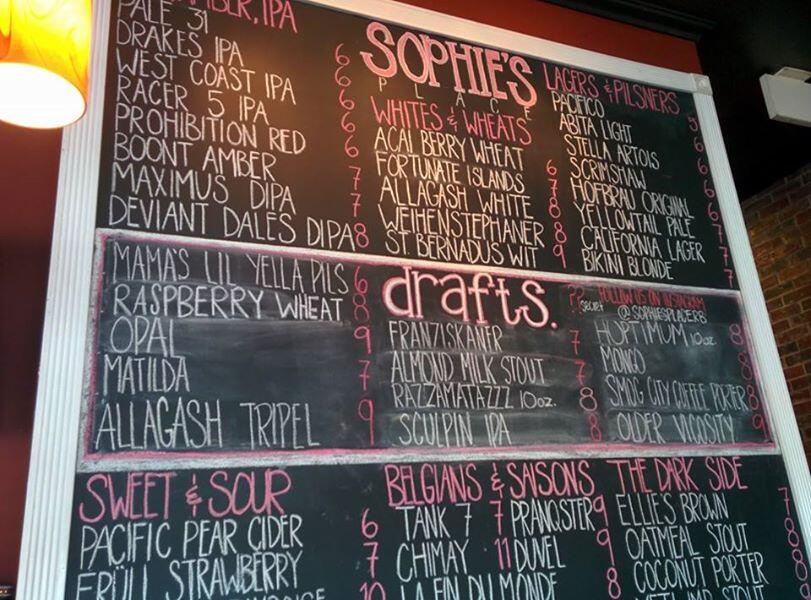 AMBER, IPA
PALE 31
DRAKES IPA 6
WEST COAST IPA 6
RACER 5 IPA 6
PROHIBITION RED 6
BOONT AMBER 6
MAXIMUS DIPA 7
DEVIANT DALES DIPA 8
SOPHIE'S
PLACE
WHITES & WHEATS
ACAI BERRY WHEAT
FORTUNATE ISLANDS 6
ALLAGASH WHITE 7
WEIHENSTEPHANER 8
ST. BERNADUS WIT 9
LAGERS & PILSNERS
PACIFICO 5
ABITA LIGHT 6
STELLA ARTOIS 6
SCRIMSHAW 6
HOFBRAU ORIGINAL 6
YELLOWTAIL PALE 7
CALIFORNIA LAGER 7
BIKINI BLONDE 7
MAMA'S LIL YELLA PILS 6
RASPBERRY WHEAT 8
OPAL 9
MATILDA 7
ALLAGASH TRIPEL 9
drafts.
FRANZISKANER 7
ALMOND MILK STOUT 7
RAZZAMATAZZZ 10oz. 8
SCULPIN IPA 8
?? secret
FOLLOW US ON INSTAGRAM
@SOPHIESPLACERB
HOPTIMUM 10oz 8
MONGO 8
SMOG CITY COFFEE PORTER 8
OLDER VICOSITY 9
SWEET & SOUR
PACIFIC PEAR CIDER 6
FRÜLI STRAWBERRY 7
10
BELGIANS & SAISONS
TANK 7 7 PRANQSTER 9
CHIMAY 11 DUVEL 9
LA FIN DU MONDE 8
THE DARK SIDE
ELLIE'S BROWN 7
OATMEAL STOUT 8
COCONUT PORTER 8
STOUT 8